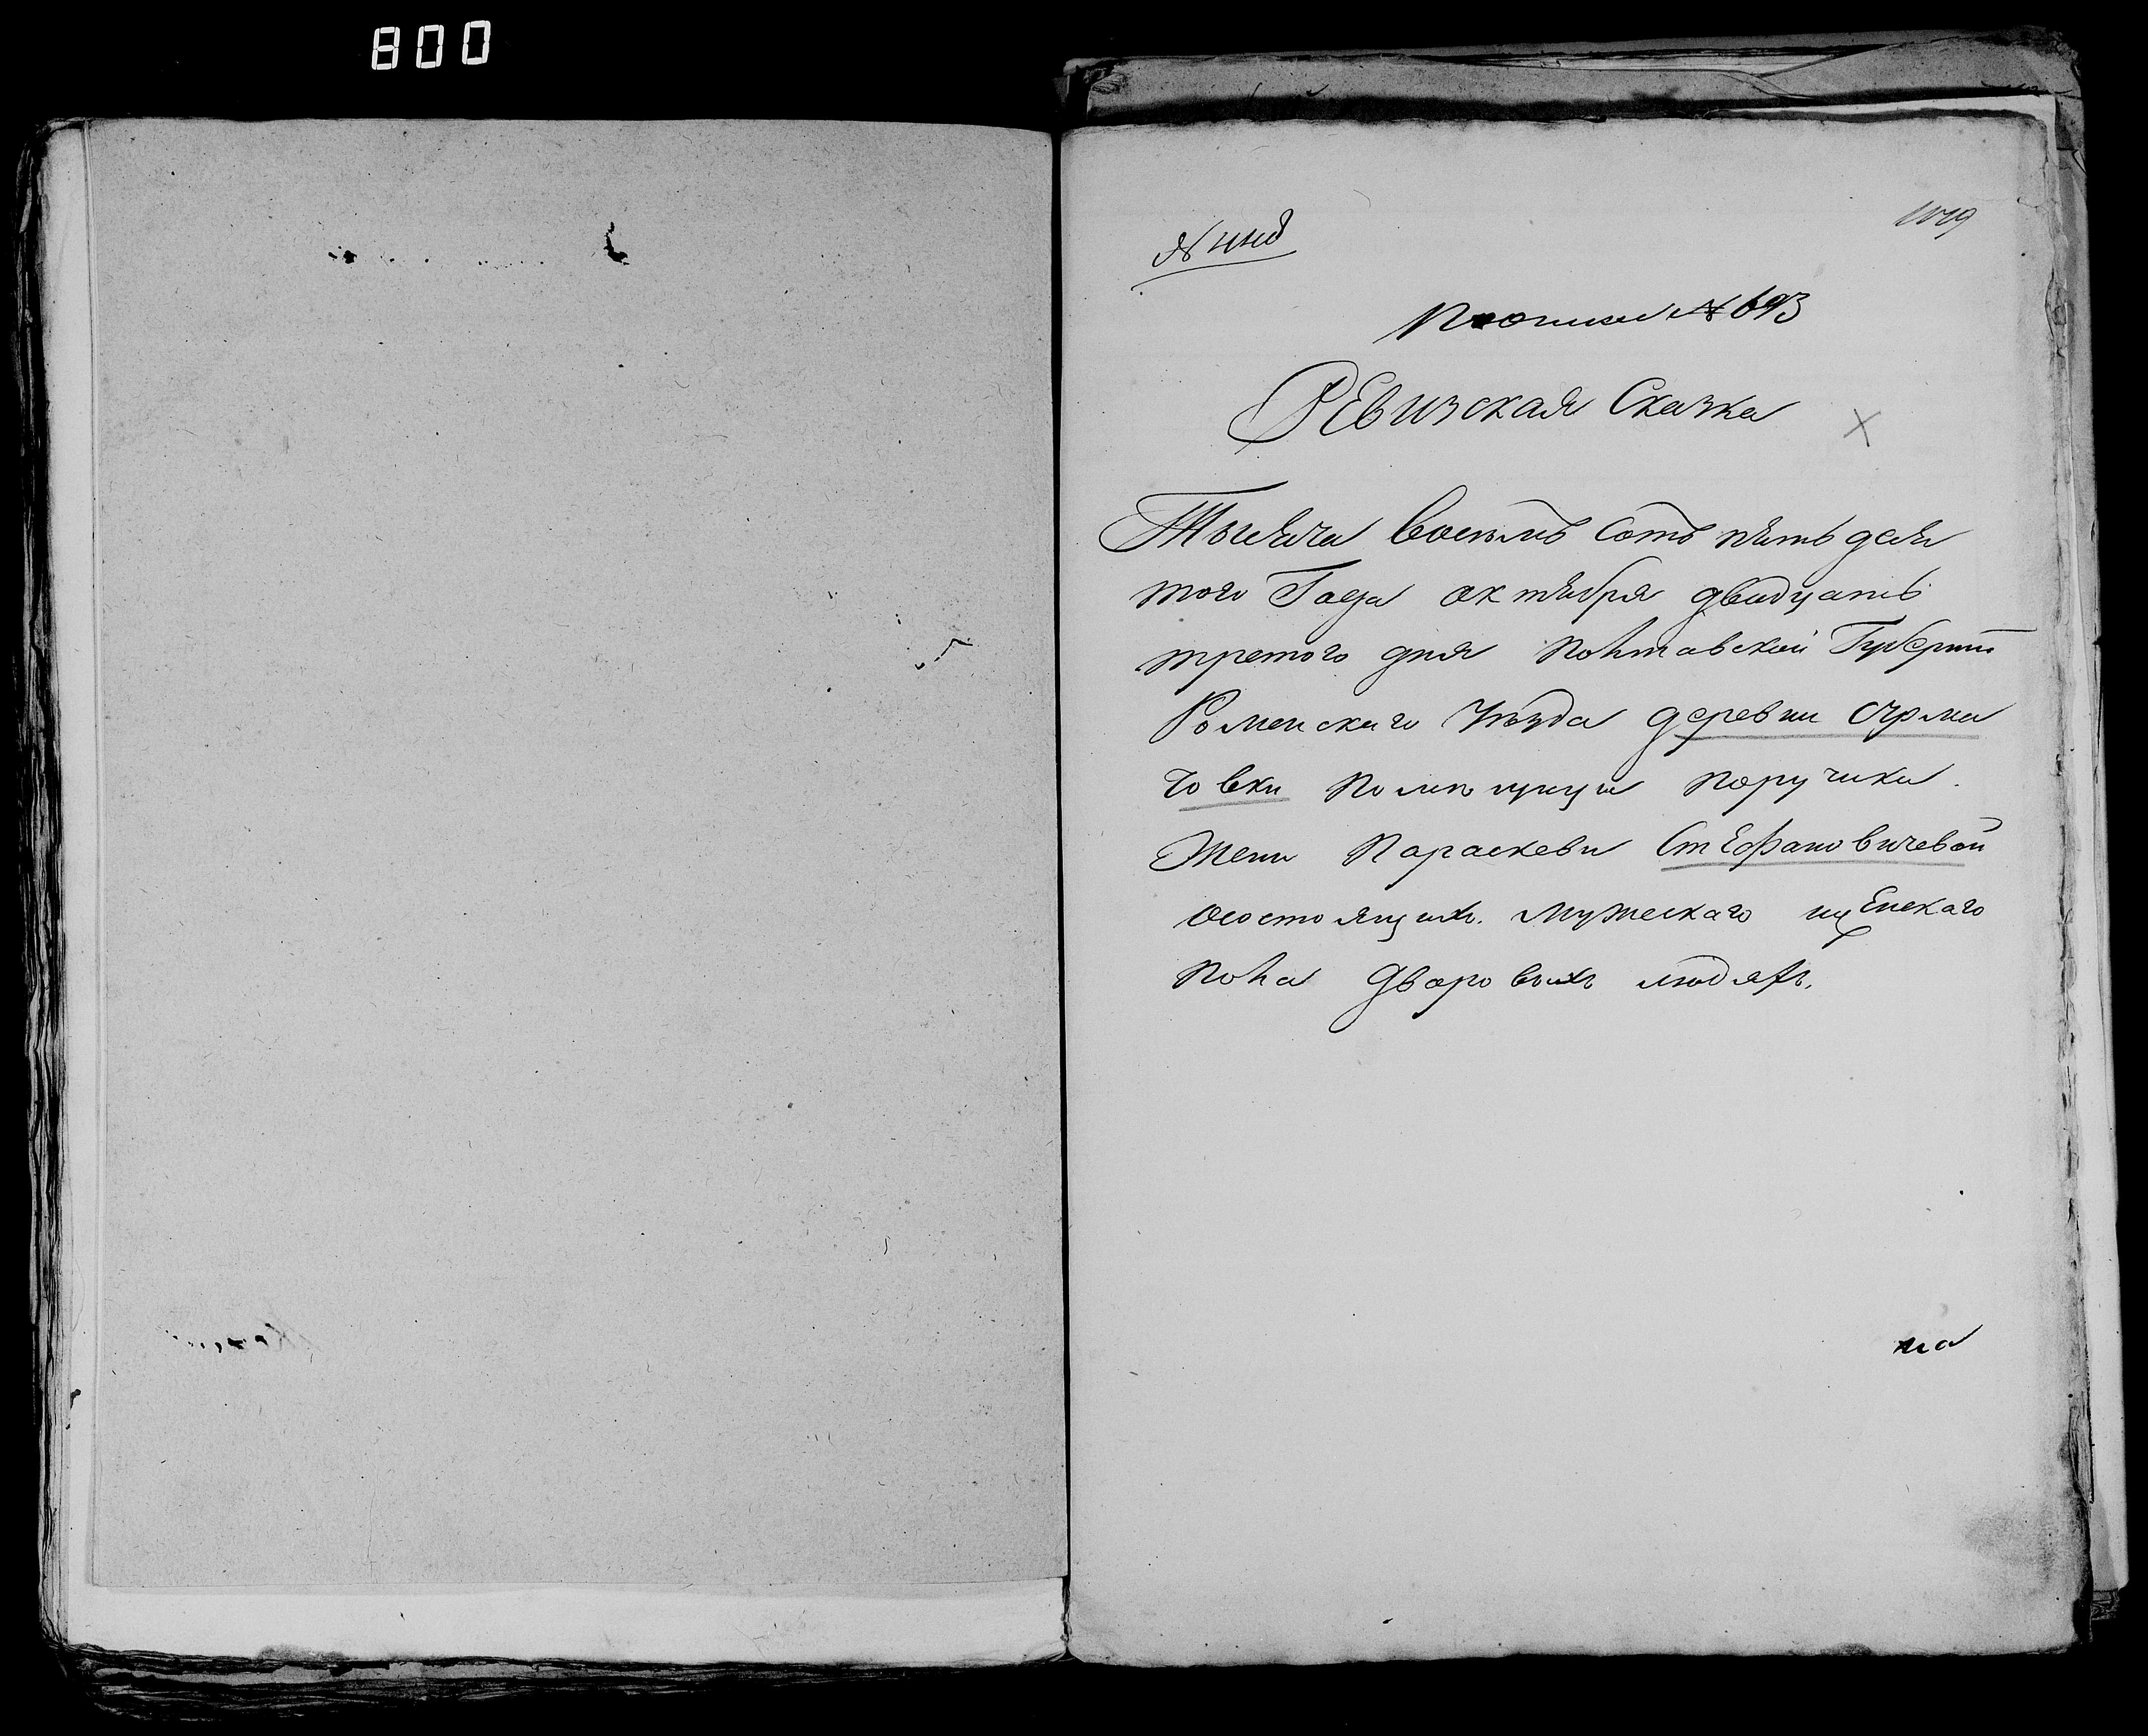 800
1019
№
№ 693
Ревизская Сказка
Тысяча восемь сотъ пять деся
того Года октября двадцать
третого дня Полтавской Губернии
Роменскаго уезда деревни
товки помещицы поручика
жени Параскеви Стефановичевой
осостоящихъ мужескаго иженскаго
пола дворовыхъ людяхъ.
на